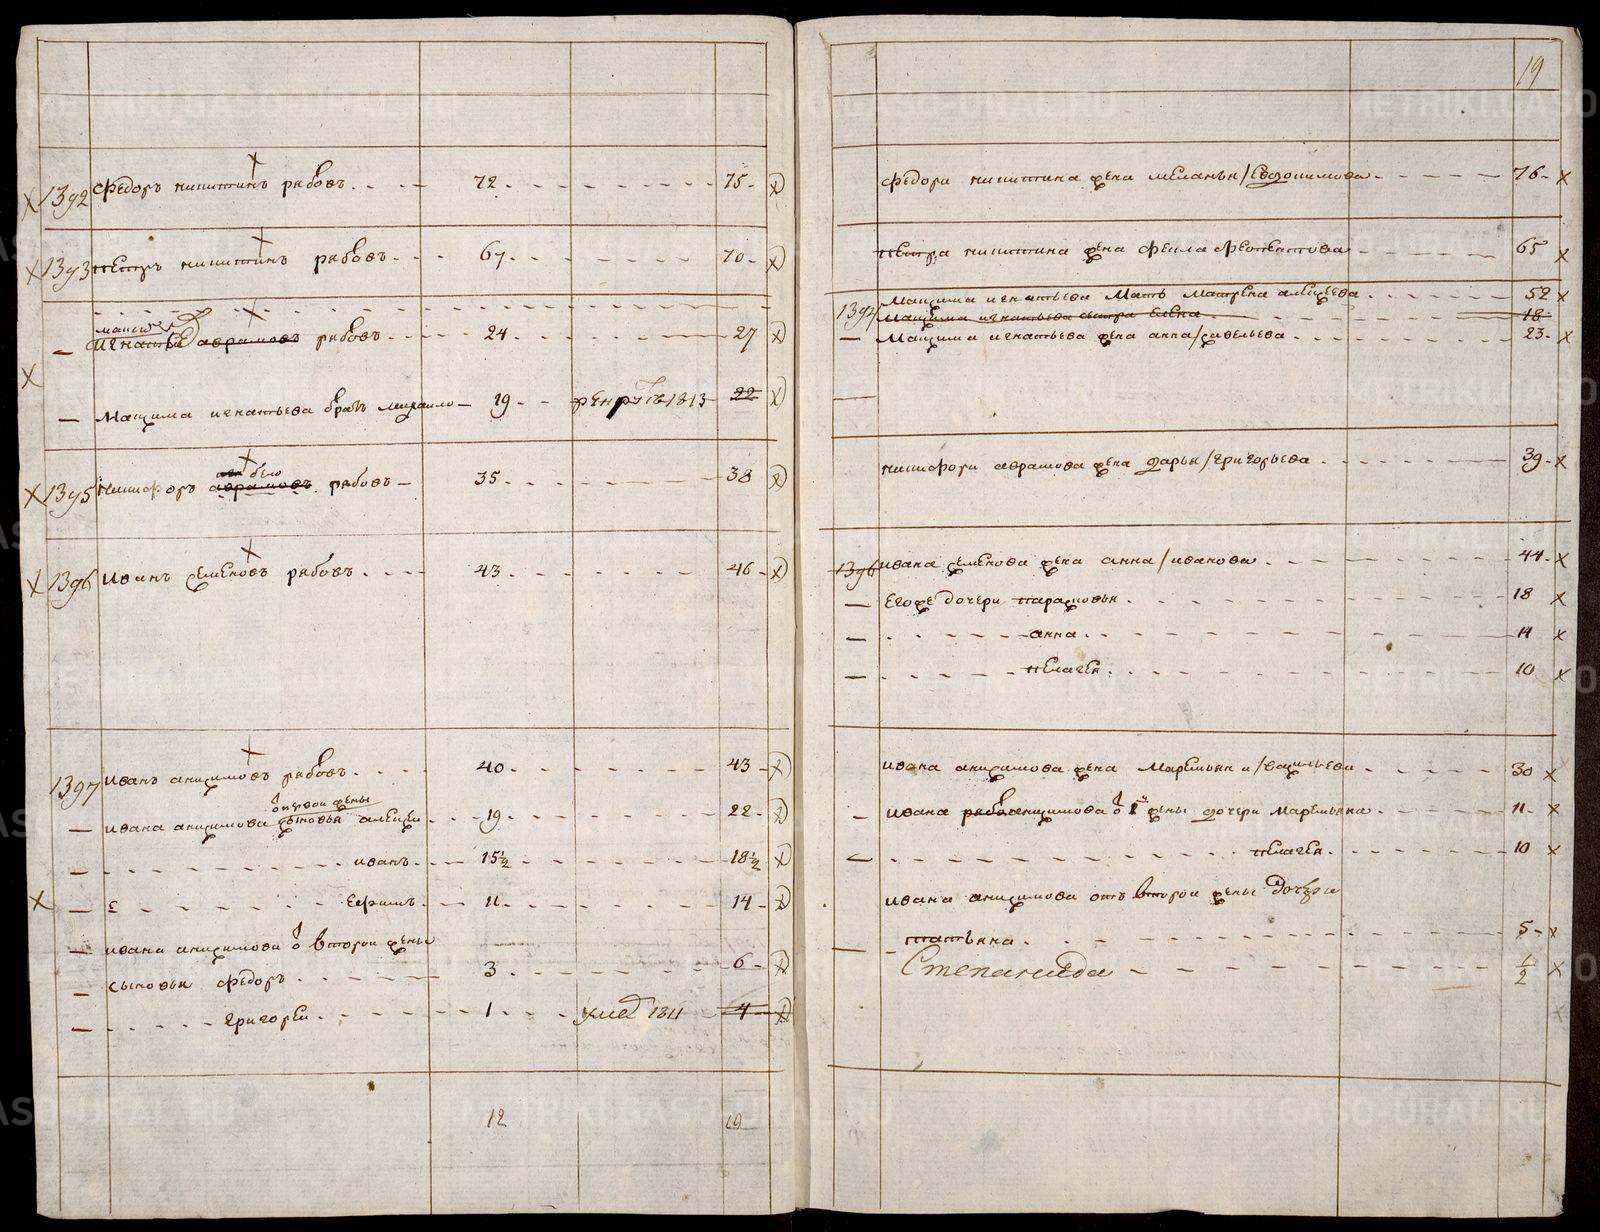 1392 Федоръ никитинъ рябовъ 72 75
1393 петръ никитинъ рябовъ 67 70
максимъ
игнатьевъ аврамовъ рябовъ 24 27
Максима игнатьева братъ михаило 19 рекрутъ 1813 22
бело
1395 никифоръ аврамовъ рябовъ 35 38
1396 иванъ семеновъ рябовъ 43 46
1397 иванъ анисимовъ рябовъ 40 43
о первои жены
ивана анисимова сыновья алексеи 19 22
иванъ 15½ 18½
Ефимъ 11 14
ивана анисимова о второи жены
сыновья федоръ 3 6
григореи 1 уме 1811 4
12 10
19
федора никитина жена меланья/Евфонимова 76
петра никитина жена фекла 65
1394 Максима игнатьева мать матрена алексеева 52
Максима игнатьева сестра елена 18
Максима игнатьева жена анна/савельева 23
никифора аврамова жена дарья/григорьева 39
1396 ивана семенова жена анна/иванова 44
Егоже дочери парасковья 18
анна 14
пелагея 10
ивана анисимова жена маремьяна/васильева 30
ивана анисимова о 1й жены дочери маремьяна 11
пелагея 10
ивана анисимова отъ второи жены дочери
татьяна 5
Степанида ½
METRIKI.GASO-URAL.RU